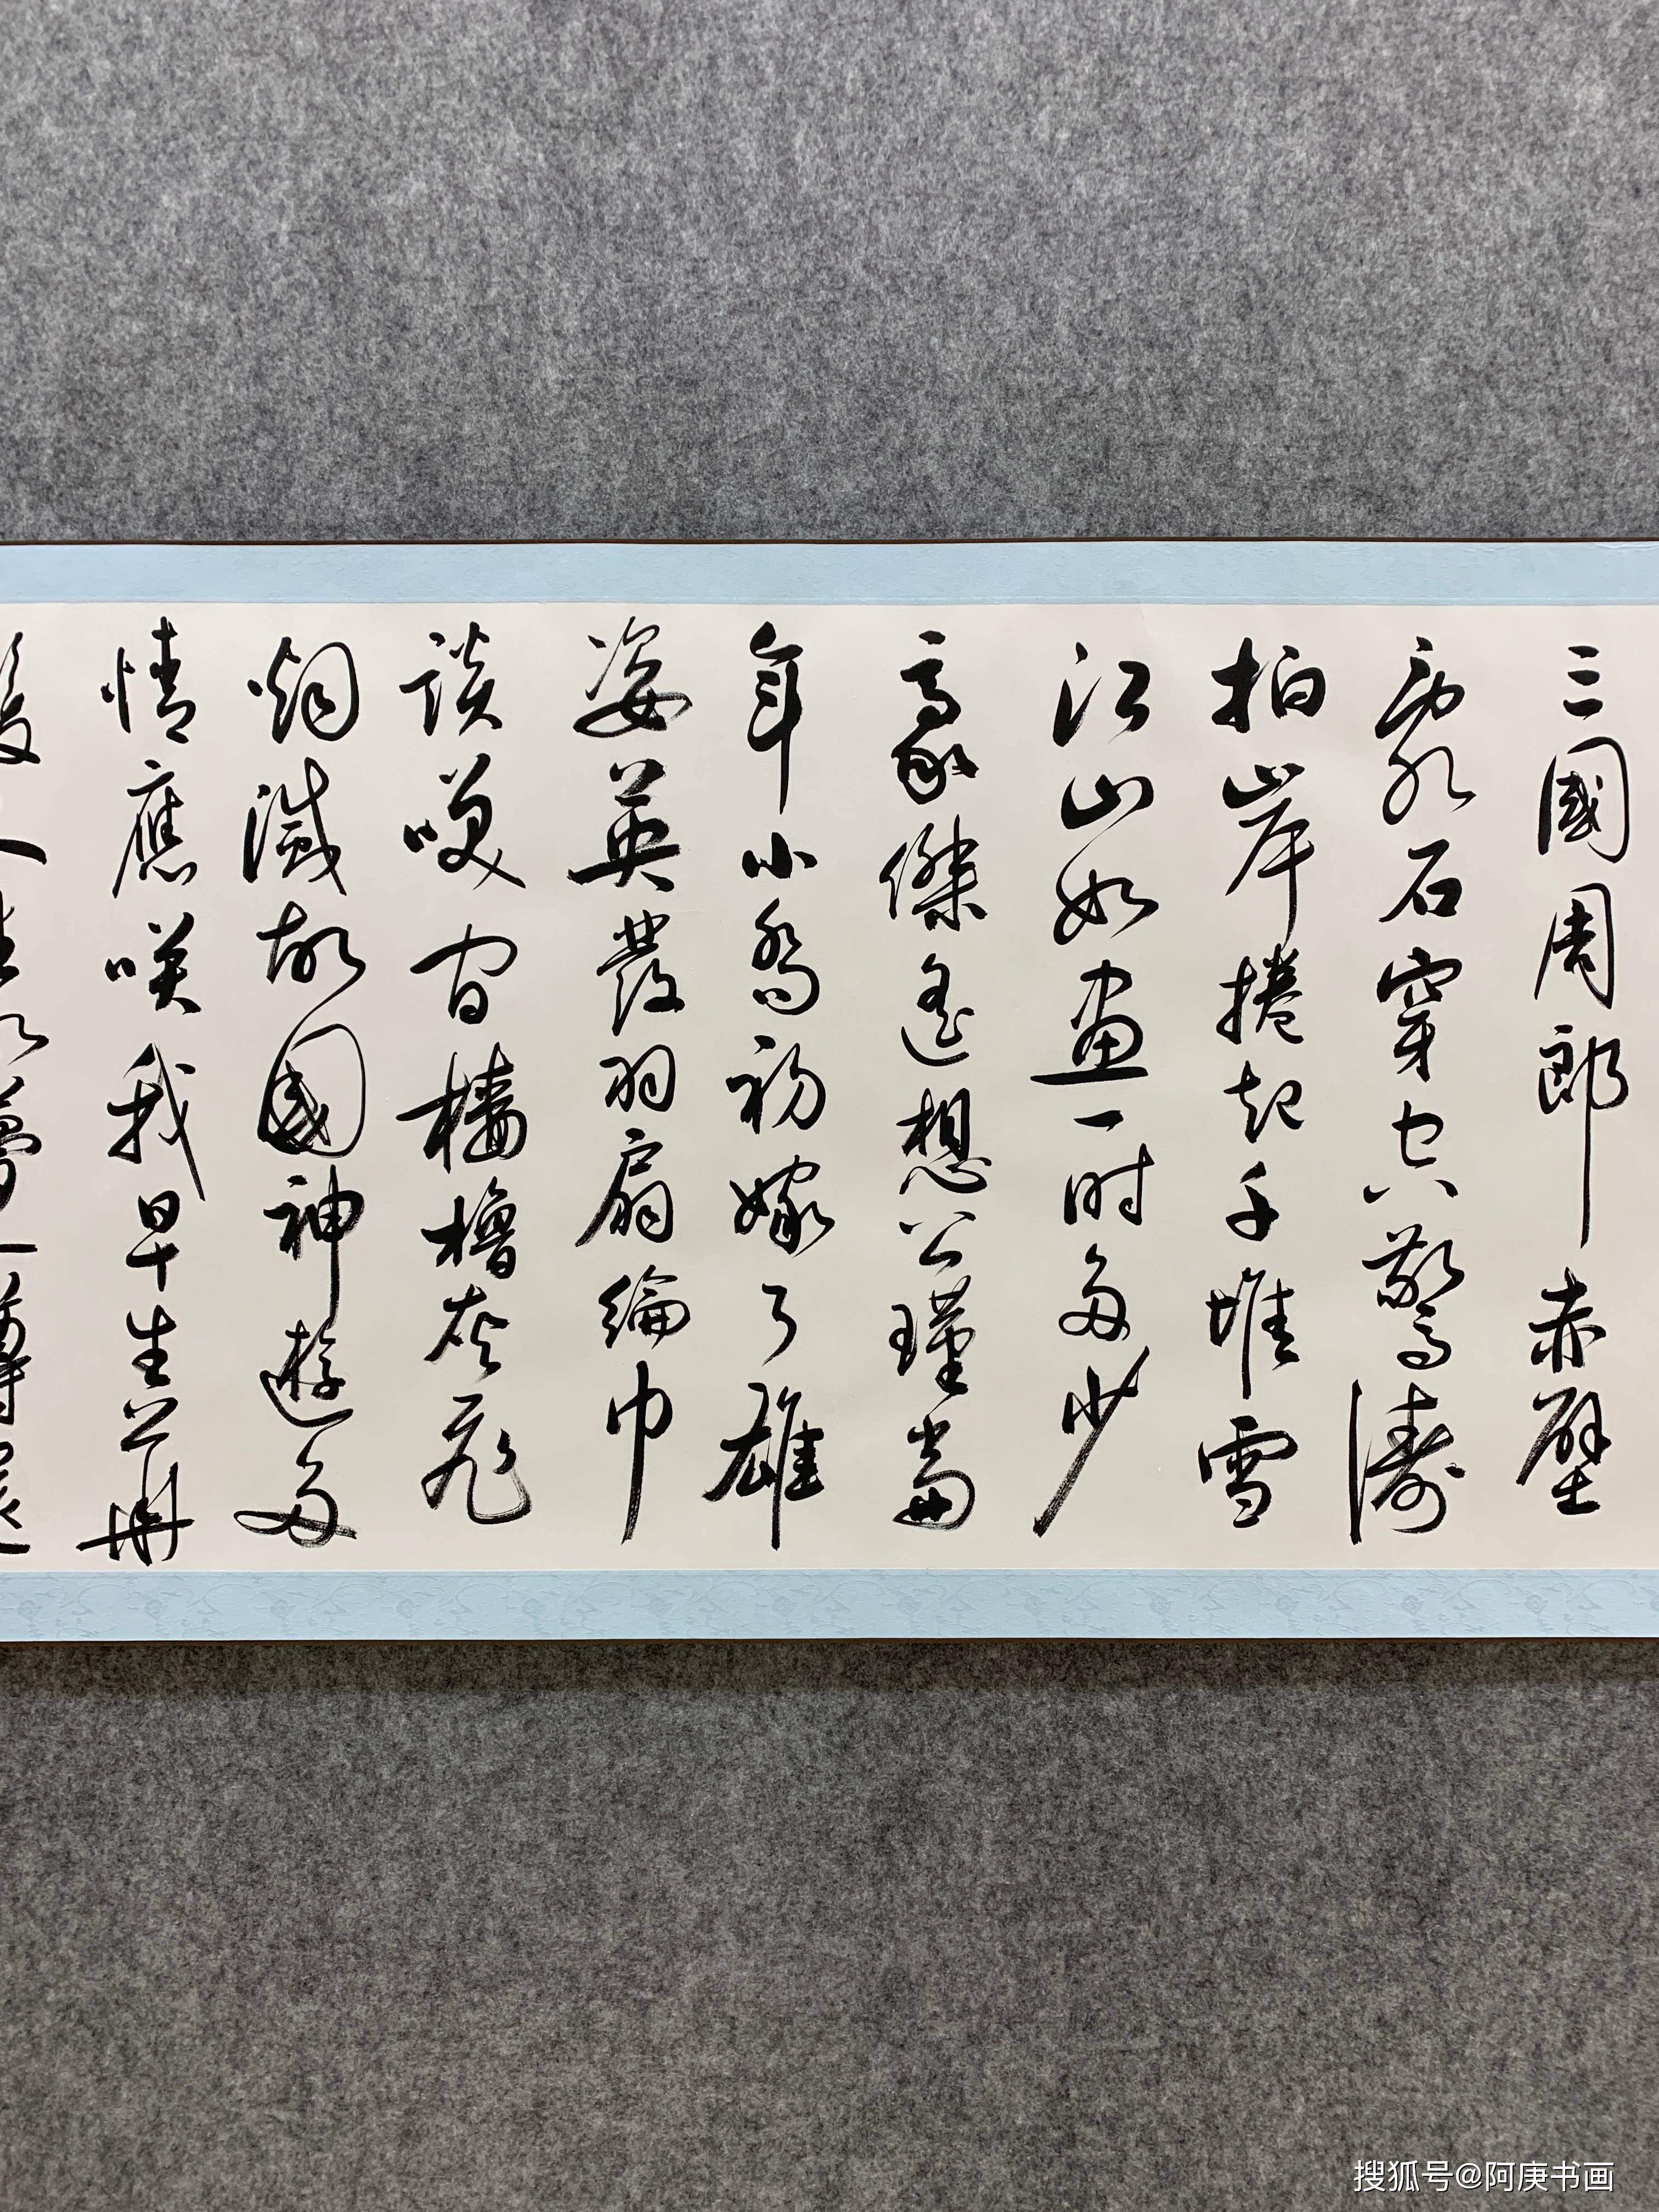 三國周郎赤壁
亂石穿空驚濤
拍岸捲起千堆雪
江山如畫一时多少
豪傑遙想公瑾當
年小喬初嫁了雄
姿英發羽扇綸巾
談咲間檣櫓灰飛
烟滅故國神遊多
情應咲我早生華
髮人生如夢一還
搜狐号@阿庚书画